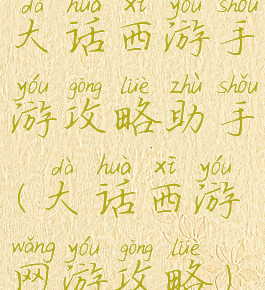 dà huà xī yóu shǒu
大话西游手
yóu gōng lüè zhù shǒu
游攻略助手
dà huà xī yóu
(大话西游
wǎng yóu gōng lüè
网游攻略)